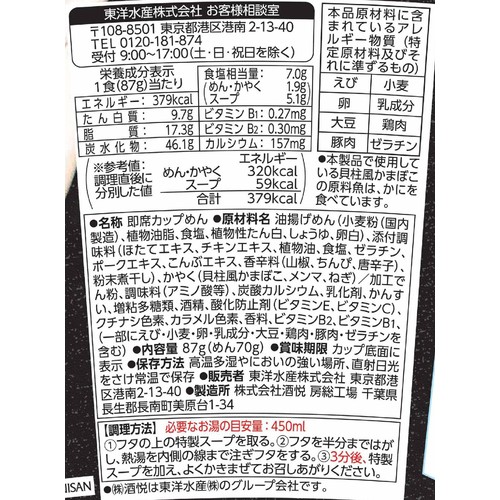 東洋水産株式会社 お客様相談室
〒108-8501 東京都港区港南2-13-40
TEL 0120-181-874
受付 9:00~17:00(土・日・祝日を除く)
栄養成分表示
1食(87g)当たり
エネルギー: 379kcal
たん白質: 9.7g
脂質: 17.3g
炭水化物: 46.1g
食塩相当量: 7.0g
(めん・かやく 1.9g)
スープ 5.1g
ビタミン B1: 0.27mg
ビタミン B2: 0.30mg
カルシウム: 157mg
※参考値: 調理直後に分別した値
エネルギー
めん・かやく 320kcal
スープ 59kcal
合計 379kcal
本品原材料に含
まれているアレ
ルギー物質(特
定原材料及びそ
れに準ずるもの)
えび 小麦
卵 乳成分
大豆 鶏肉
豚肉 ゼラチン
●本製品で使用して
いる貝柱風かまぼこ
の原料魚は、かにを
食べています。
●名称 即席カップめん ●原材料名 油揚げめん(小麦粉(国内
製造)、植物油脂、食塩、植物性たん白、しょうゆ、卵白)、添付調
味料(ほたてエキス、チキンエキス、植物油、食塩、ゼラチン、
ポークエキス、こんぶエキス、香辛料(山椒、ちんぴ、唐辛子)、
粉末煮干し)、かやく(貝柱風かまぼこ、メンマ、ねぎ)/加工で
ん粉、調味料(アミノ酸等)、炭酸カルシウム、乳化剤、かんす
い、増粘多糖類、酒精、酸化防止剤(ビタミンE、ビタミンC)、
クチナシ色素、カラメル色素、香料、ビタミンB2、ビタミンB1、
(一部にえび・小麦・卵・乳成分・大豆・鶏肉・豚肉・ゼラチンを
含む) ●内容量 87g(めん70g) ●賞味期限 カップ底面に
表示 ●保存方法 高温多湿やにおいの強い場所、直射日光
をさけ常温で保存 ●販売者 東洋水産株式会社 東京都港
区港南2-13-40 ●製造所 株式会社酒悦 房総工場 千葉県
長生郡長南町美原台1-34
【調理方法】 必要なお湯の目安量: 450ml
①フタの上の特製スープを取る。②フタを半分まではが
し、熱湯を内側の線まで注ぎフタをする。③3分後、特製
スープを加え、よくかきまぜてお召しあがりください。
●㈱酒悦は東洋水産㈱のグループ会社です。
ISAN